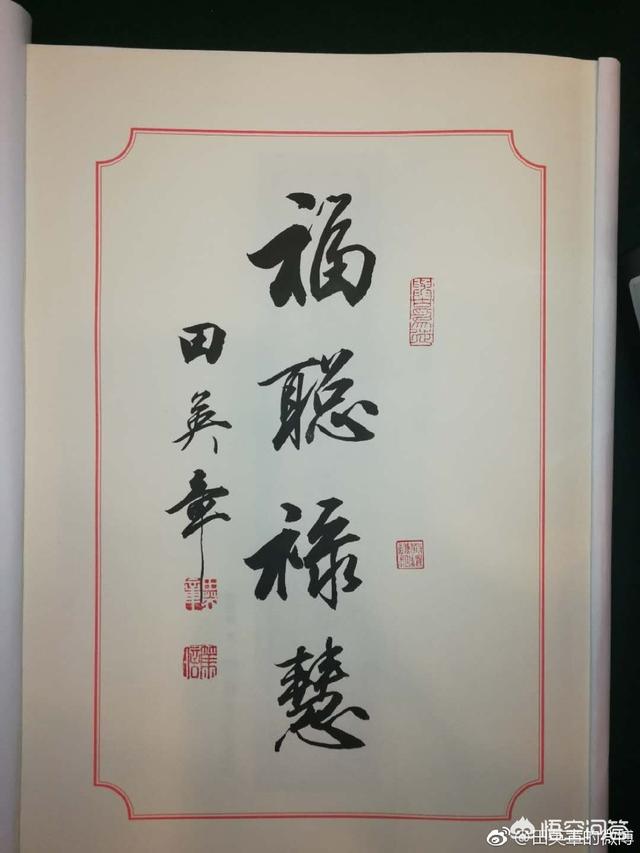 福聪禄慧
田英章
田英章
悟空问答
@田英章的微博